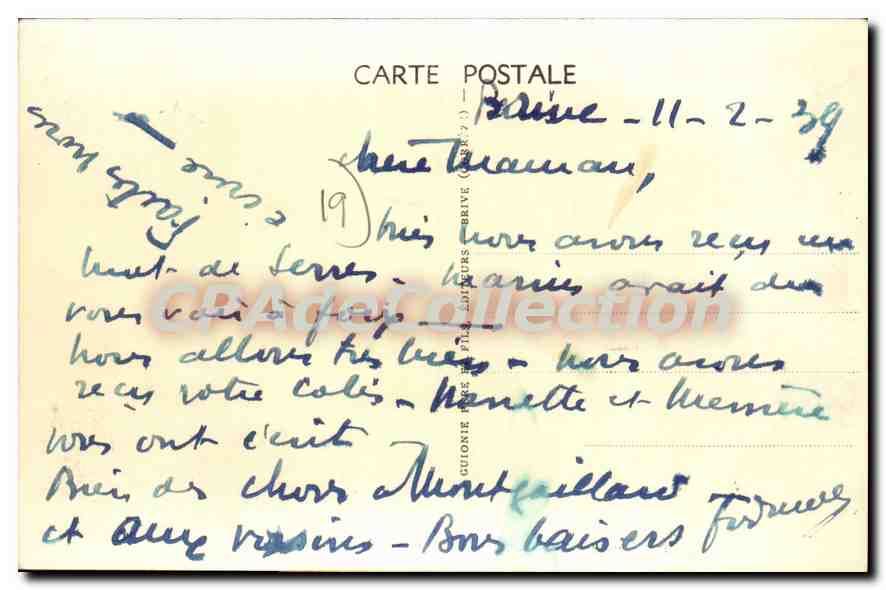 CARTE POSTALE
Brive - 11 - 2 - 39
chère Maman,
19
nous avons reçu un
mot de Serres - Marius avait du
vous voir à
nous allons très bien - nous avons
reçu votre colis - Nanette et Mémère
vous ont écrit -
Bien des choses à Montgaillard
et aux voisins - Bons baisers
Faites nous
écrire
GUIONIE PÈRE ET FILS, ÉDITEURS BRIVE
CPAdeCollection